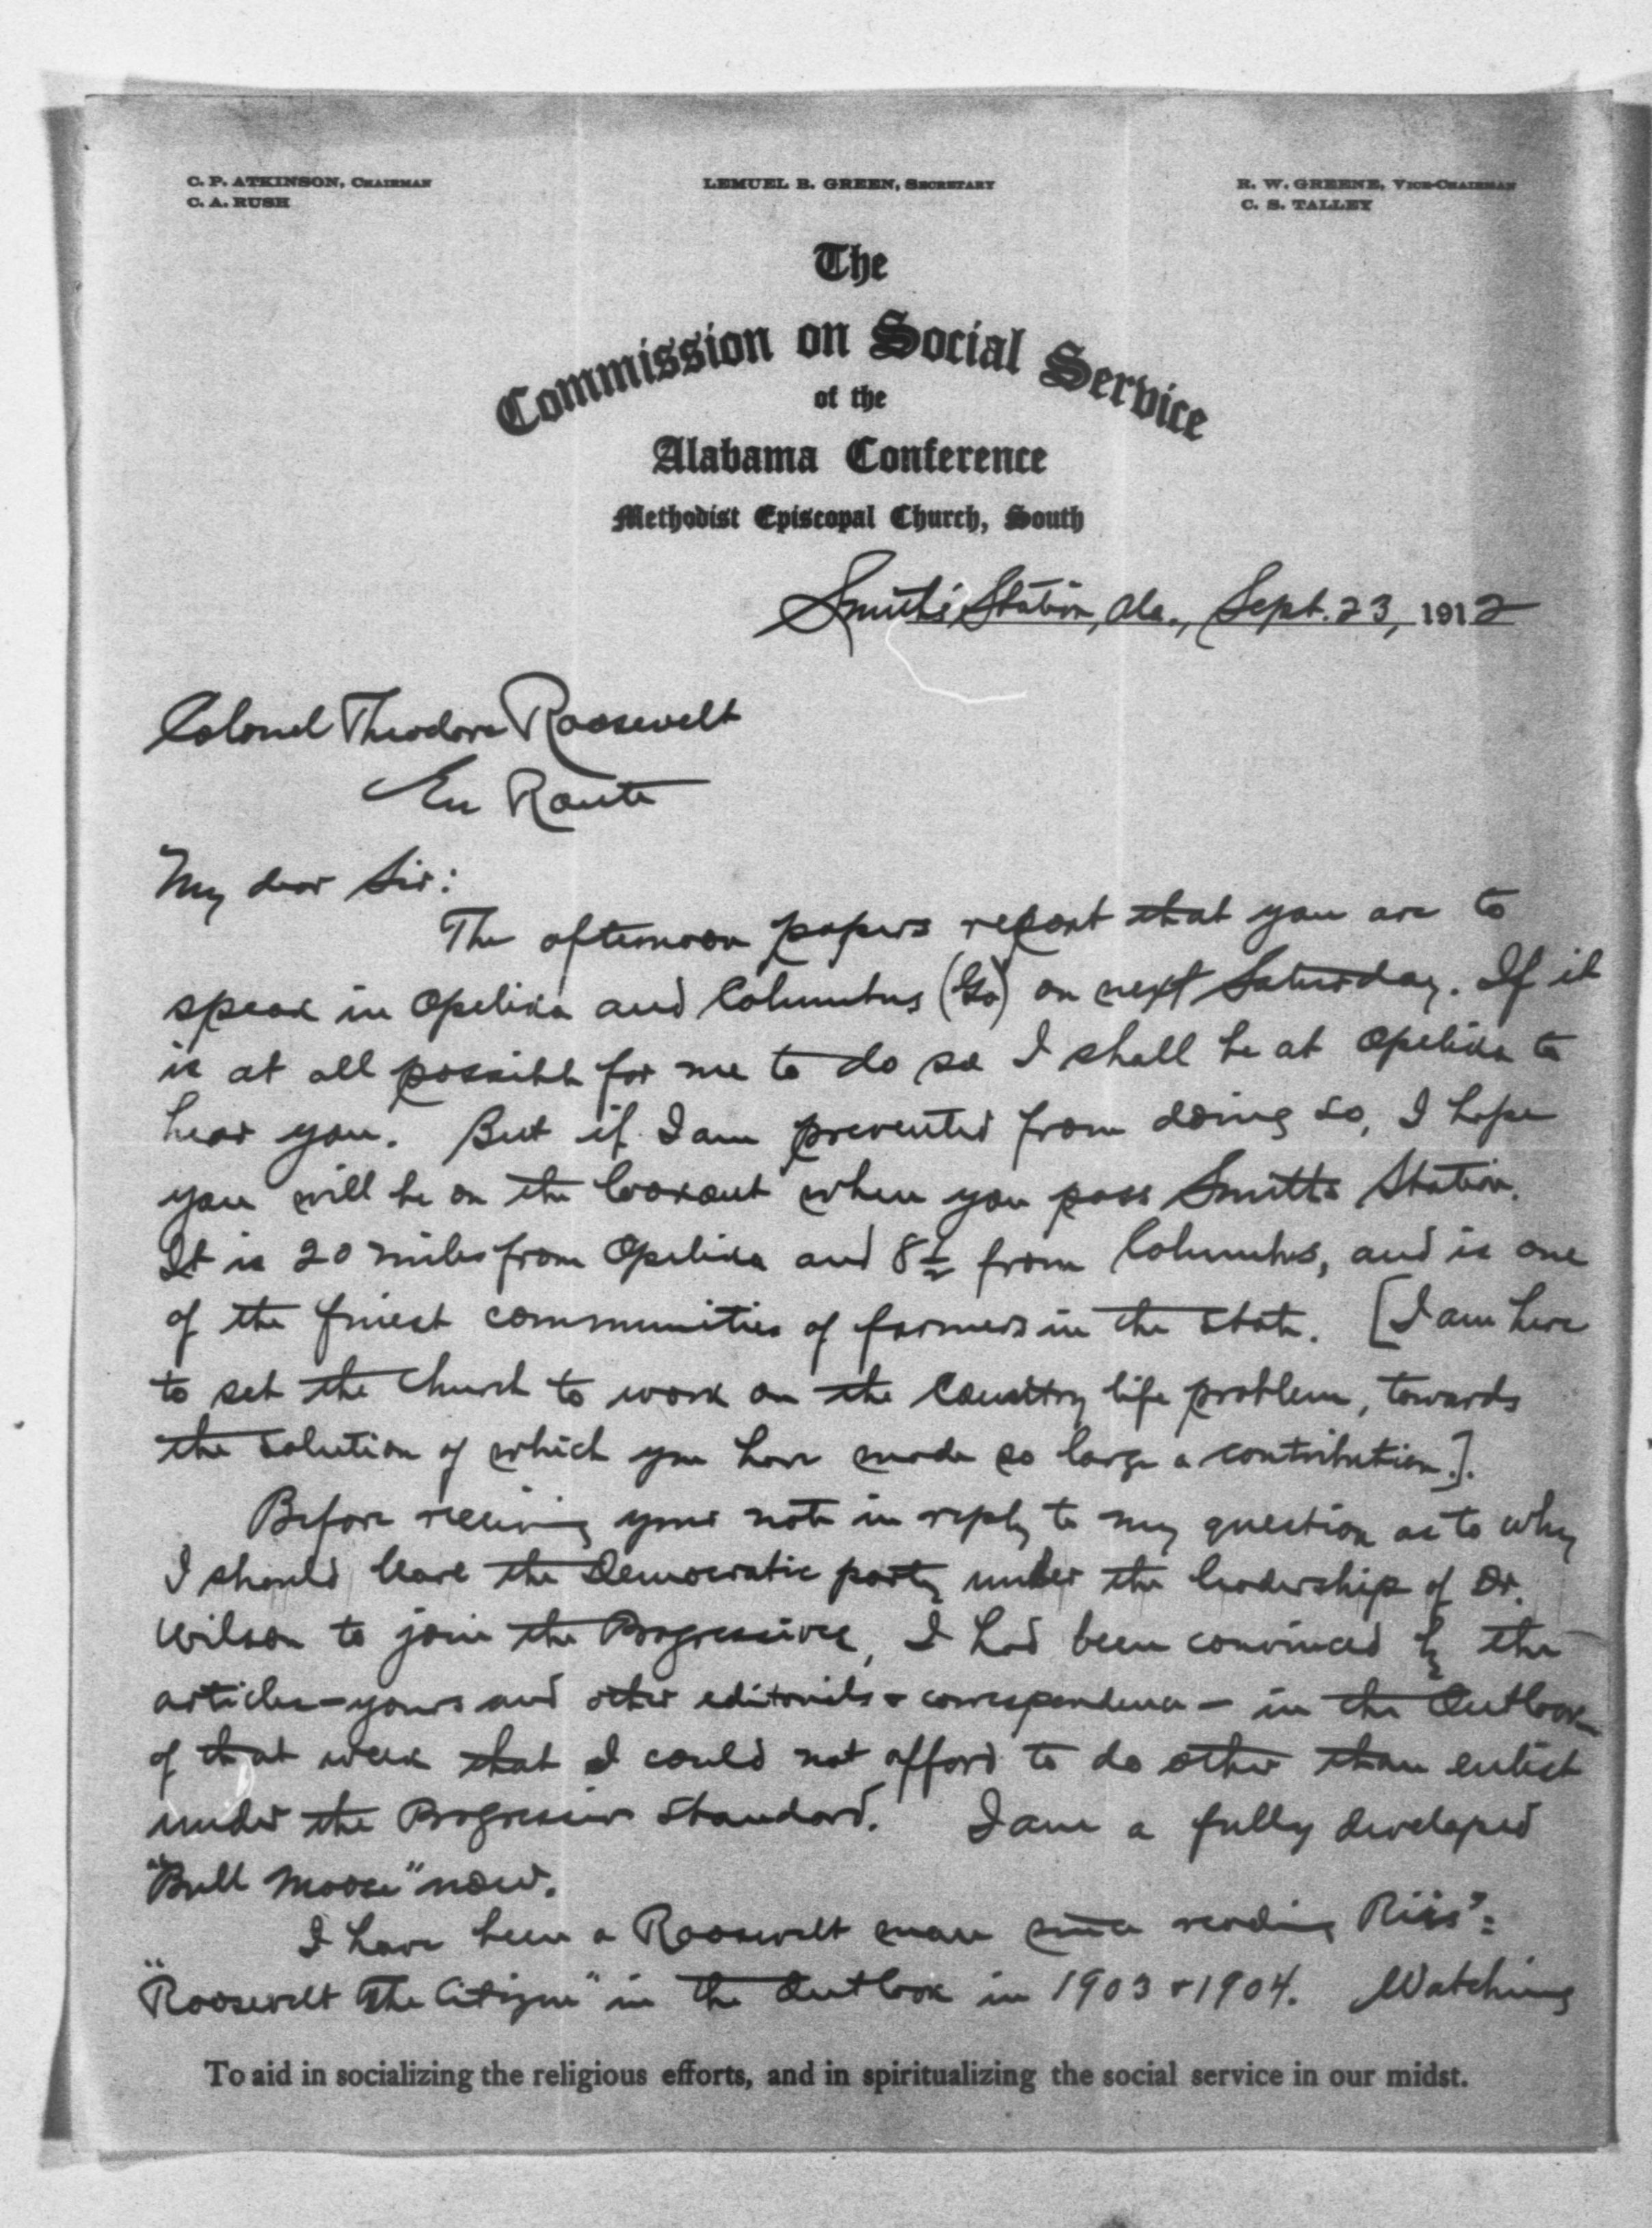 C. P. ATKINSON, CHAIRMAN
C. A. RUSH
LEMUEL B. GREEN, SECRETARY
R. W. GREENE, VICE-CHAIRMAN
C. S. TALLEY
The
Commission on Social Service
of the
Alabama Conference
Methodist Episcopal Church, South
Smiths Station, Ala., Sept. 23, 1912
Colonel Theodore Roosevelt
En Route
My dear Sir:
The afternoon papers report that you are to
speak in Opelika and Columbus (Ga) on next Saturday. If it
is at all possible for me to do so I shall be at Opelika to
hear you. But if I am prevented from doing so, I hope
you will be on the lookout when you pass Smiths Station.
It is 20 miles from Opelika and 8½ from Columbus, and is one
of the finest communities of farmers in the state. [I am here
to set the church to work on the Country life problem, towards
the solution of which you have made so large a contribution.].
Before receiving your note in reply to my question as to why
I should leave the Democratic party under the leadership of Dr.
Wilson to join the Progressives, I had been convinced by the
articles—yours and other editorials & correspondence—in the Outlook
of that week that I could not afford to do other than enlist
under the Progressive standard. I am a fully developed
"Bull Moose" now.
I have been a Roosevelt man since reading Riis':
"Roosevelt The Citizen" in the Outlook in 1903 & 1904. Watching
To aid in socializing the religious efforts, and in spiritualizing the social service in our midst.